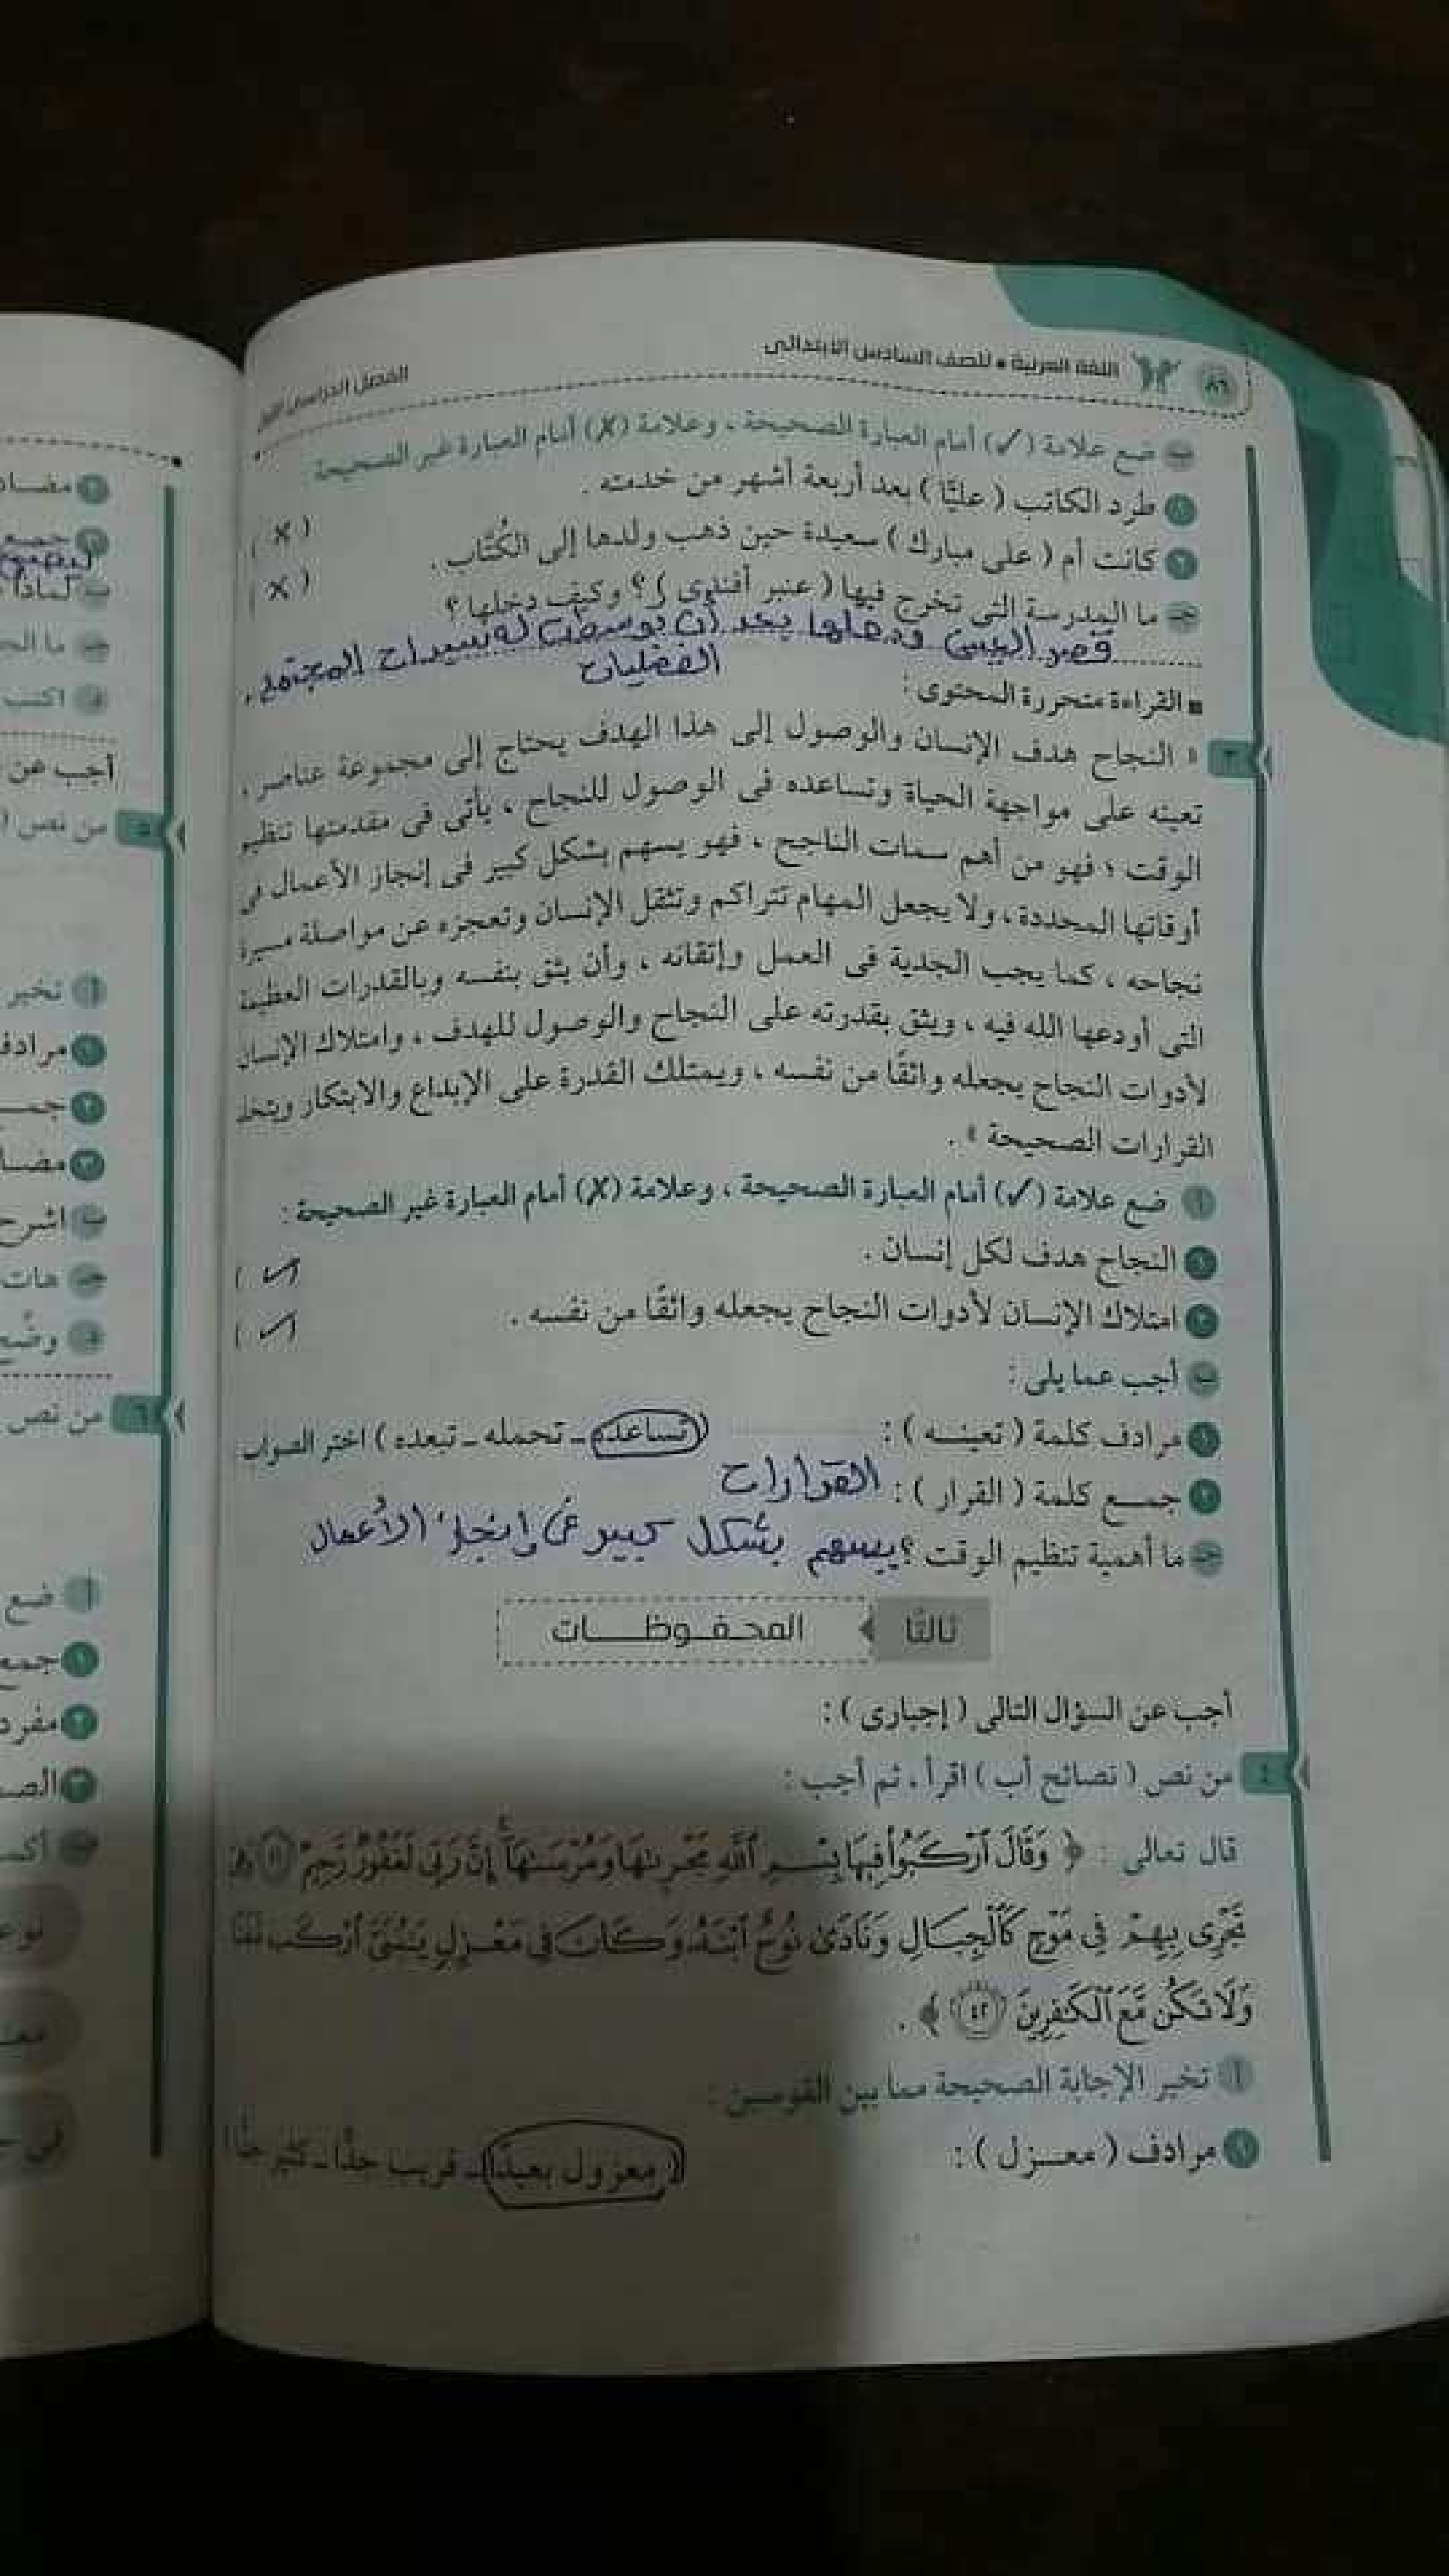 ٨٦ اللغة العربية • للصف السادس الابتدائى
الفصل الدراسى الأول
ب ضع علامة (✓) أمام العبارة الصحيحة ، وعلامة (X) أمام العبارة غير الصحيحة
١ طرد الكاتب ( عليًّا ) بعد أربعة أشهر من خدمته . ( X )
٢ كانت أم ( على مبارك ) سعيدة حين ذهب ولدها إلى الكُتَّاب . ( X )
جـ ما المدرسة التى تخرج فيها ( عنبر أفندى ) ؟ وكيف دخلها ؟
قصر العينى ودخلها بعد أن توسطت له سيدات المجتمع .
الفضليات
■ القراءة متحررة المحتوى :
٣ « النجاح هدف الإنسان والوصول إلى هذا الهدف يحتاج إلى مجموعة عناصر ،
تعينه على مواجهة الحياة وتساعده فى الوصول للنجاح ، يأتى فى مقدمتها تنظيم
الوقت ؛ فهو من أهم سمات الناجح ، فهو يسهم بشكل كبير فى إنجاز الأعمال فى
أوقاتها المحددة ، ولا يجعل المهام تتراكم وتثقل الإنسان وتعجزه عن مواصلة مسيرة
نجاحه ، كما يجب الجدية فى العمل وإتقانه ، وأن يثق بنفسه وبالقدرات العظيمة
التى أودعها الله فيه ، ويثق بقدرته على النجاح والوصول للهدف ، وامتلاك الإنسان
لأدوات النجاح يجعله واثقًا من نفسه ، ويمتلك القدرة على الإبداع والابتكار ويتخذ
القرارات الصحيحة » .
أ ضع علامة (✓) أمام العبارة الصحيحة ، وعلامة (X) أمام العبارة غير الصحيحة :
١ النجاح هدف لكل إنسان . ( ✓ )
٢ امتلاك الإنسان لأدوات النجاح يجعله واثقًا من نفسه . ( ✓ )
ب أجب عما يلى :
١ مرادف كلمة ( تعينه ) : ( تساعده ـ تحمله ـ تبعده ) اختر الصواب
٢ جمع كلمة ( القرار ) : القرارات
جـ ما أهمية تنظيم الوقت ؟ يسهم بشكل كبير فى إنجاز الأعمال
ثالثًا المحفوظات
أجب عن السؤال التالى ( إجبارى ) :
٤ من نص ( نصائح أب ) اقرأ ، ثم أجب :
قال تعالى : ﴿ وَقَالَ ٱرْكَبُوا۟ فِيهَا بِسْمِ ٱللَّهِ مَجْر۪ىٰهَا وَمُرْسَىٰهَآ إِنَّ رَبِّى لَغَفُورٌ رَّحِيمٌ ٤١ وَهِىَ
تَجْرِى بِهِمْ فِى مَوْجٍ كَٱلْجِبَالِ وَنَادَىٰ نُوحٌ ٱبْنَهُۥ وَكَانَ فِى مَعْزِلٍ يَـٰبُنَىَّ ٱرْكَب مَّعَنَا
وَلَا تَكُن مَّعَ ٱلْكَـٰفِرِينَ ٤٢ ﴾ .
أ تخير الإجابة الصحيحة مما بين القوسين :
١ مرادف ( معزل ) : ( معزول بعيدًا ـ قريب جدًّا ـ كثير جدًّا )
٢ مضاد
جميع
لماذا
ما الح
اكتب
أجب عن
٥ من نص
أ تخير
١ مرادف
٢ جمـ
٣ مضا
ب اشرح
جـ هات
د وضح
٦ من نص
أ ضع
١ جمع
٢ مفرد
٣ الصـ